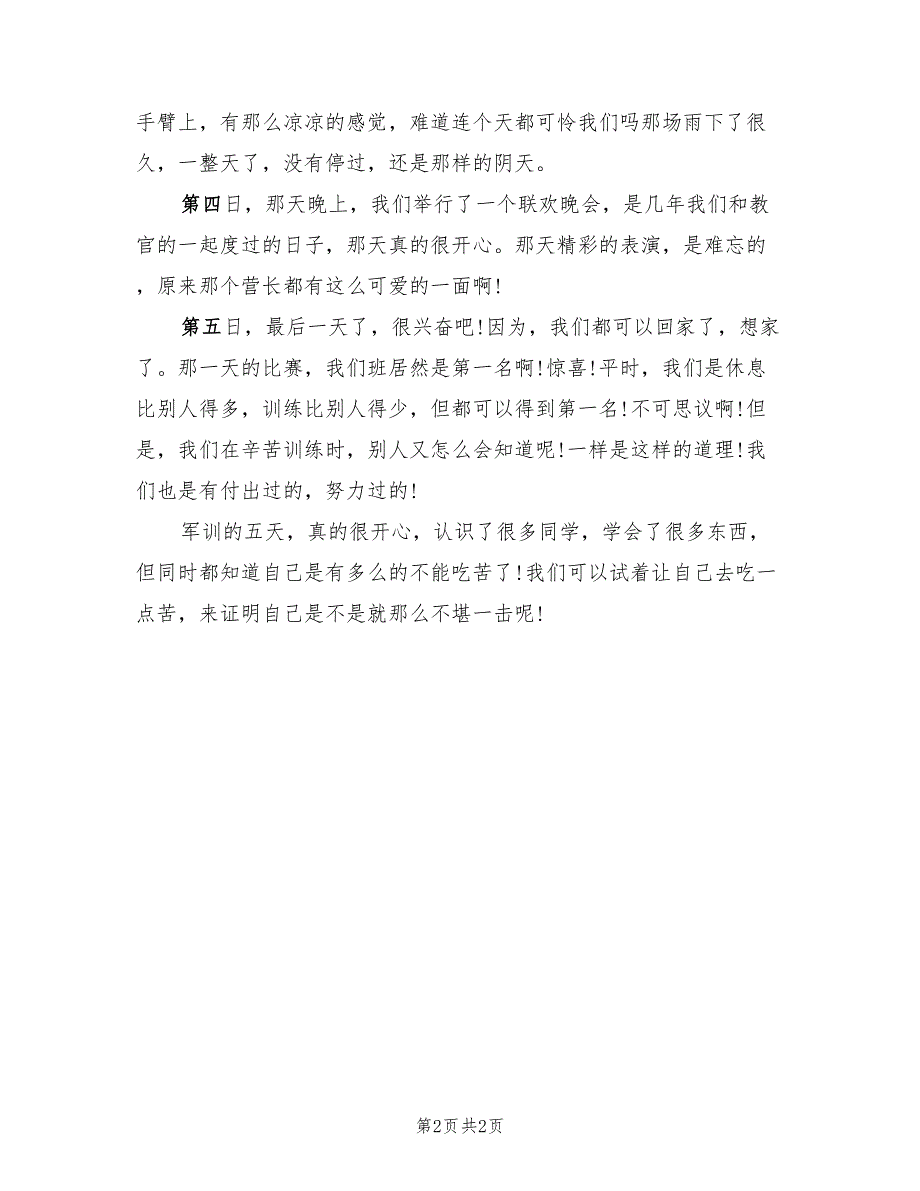 手臂上，有那么凉凉的感觉，难道连个天都可怜我们吗那场雨下了很
久，一整天了，没有停过，还是那样的阴天。
第四日，那天晚上，我们举行了一个联欢晚会，是几年我们和教
官的一起度过的日子，那天真的很开心。那天精彩的表演，是难忘的
，原来那个营长都有这么可爱的一面啊!
第五日，最后一天了，很兴奋吧!因为，我们都可以回家了，想家
了。那一天的比赛，我们班居然是第一名啊!惊喜!平时，我们是休息
比别人得多，训练比别人得少，但都可以得到第一名!不可思议啊!但
是，我们在辛苦训练时，别人又怎么会知道呢!一样是这样的道理!我
们也是有付出过的，努力过的!
军训的五天，真的很开心，认识了很多同学，学会了很多东西，
但同时都知道自己是有多么的不能吃苦了!我们可以试着让自己去吃一
点苦，来证明自己是不是就那么不堪一击呢!
第2页 共2页